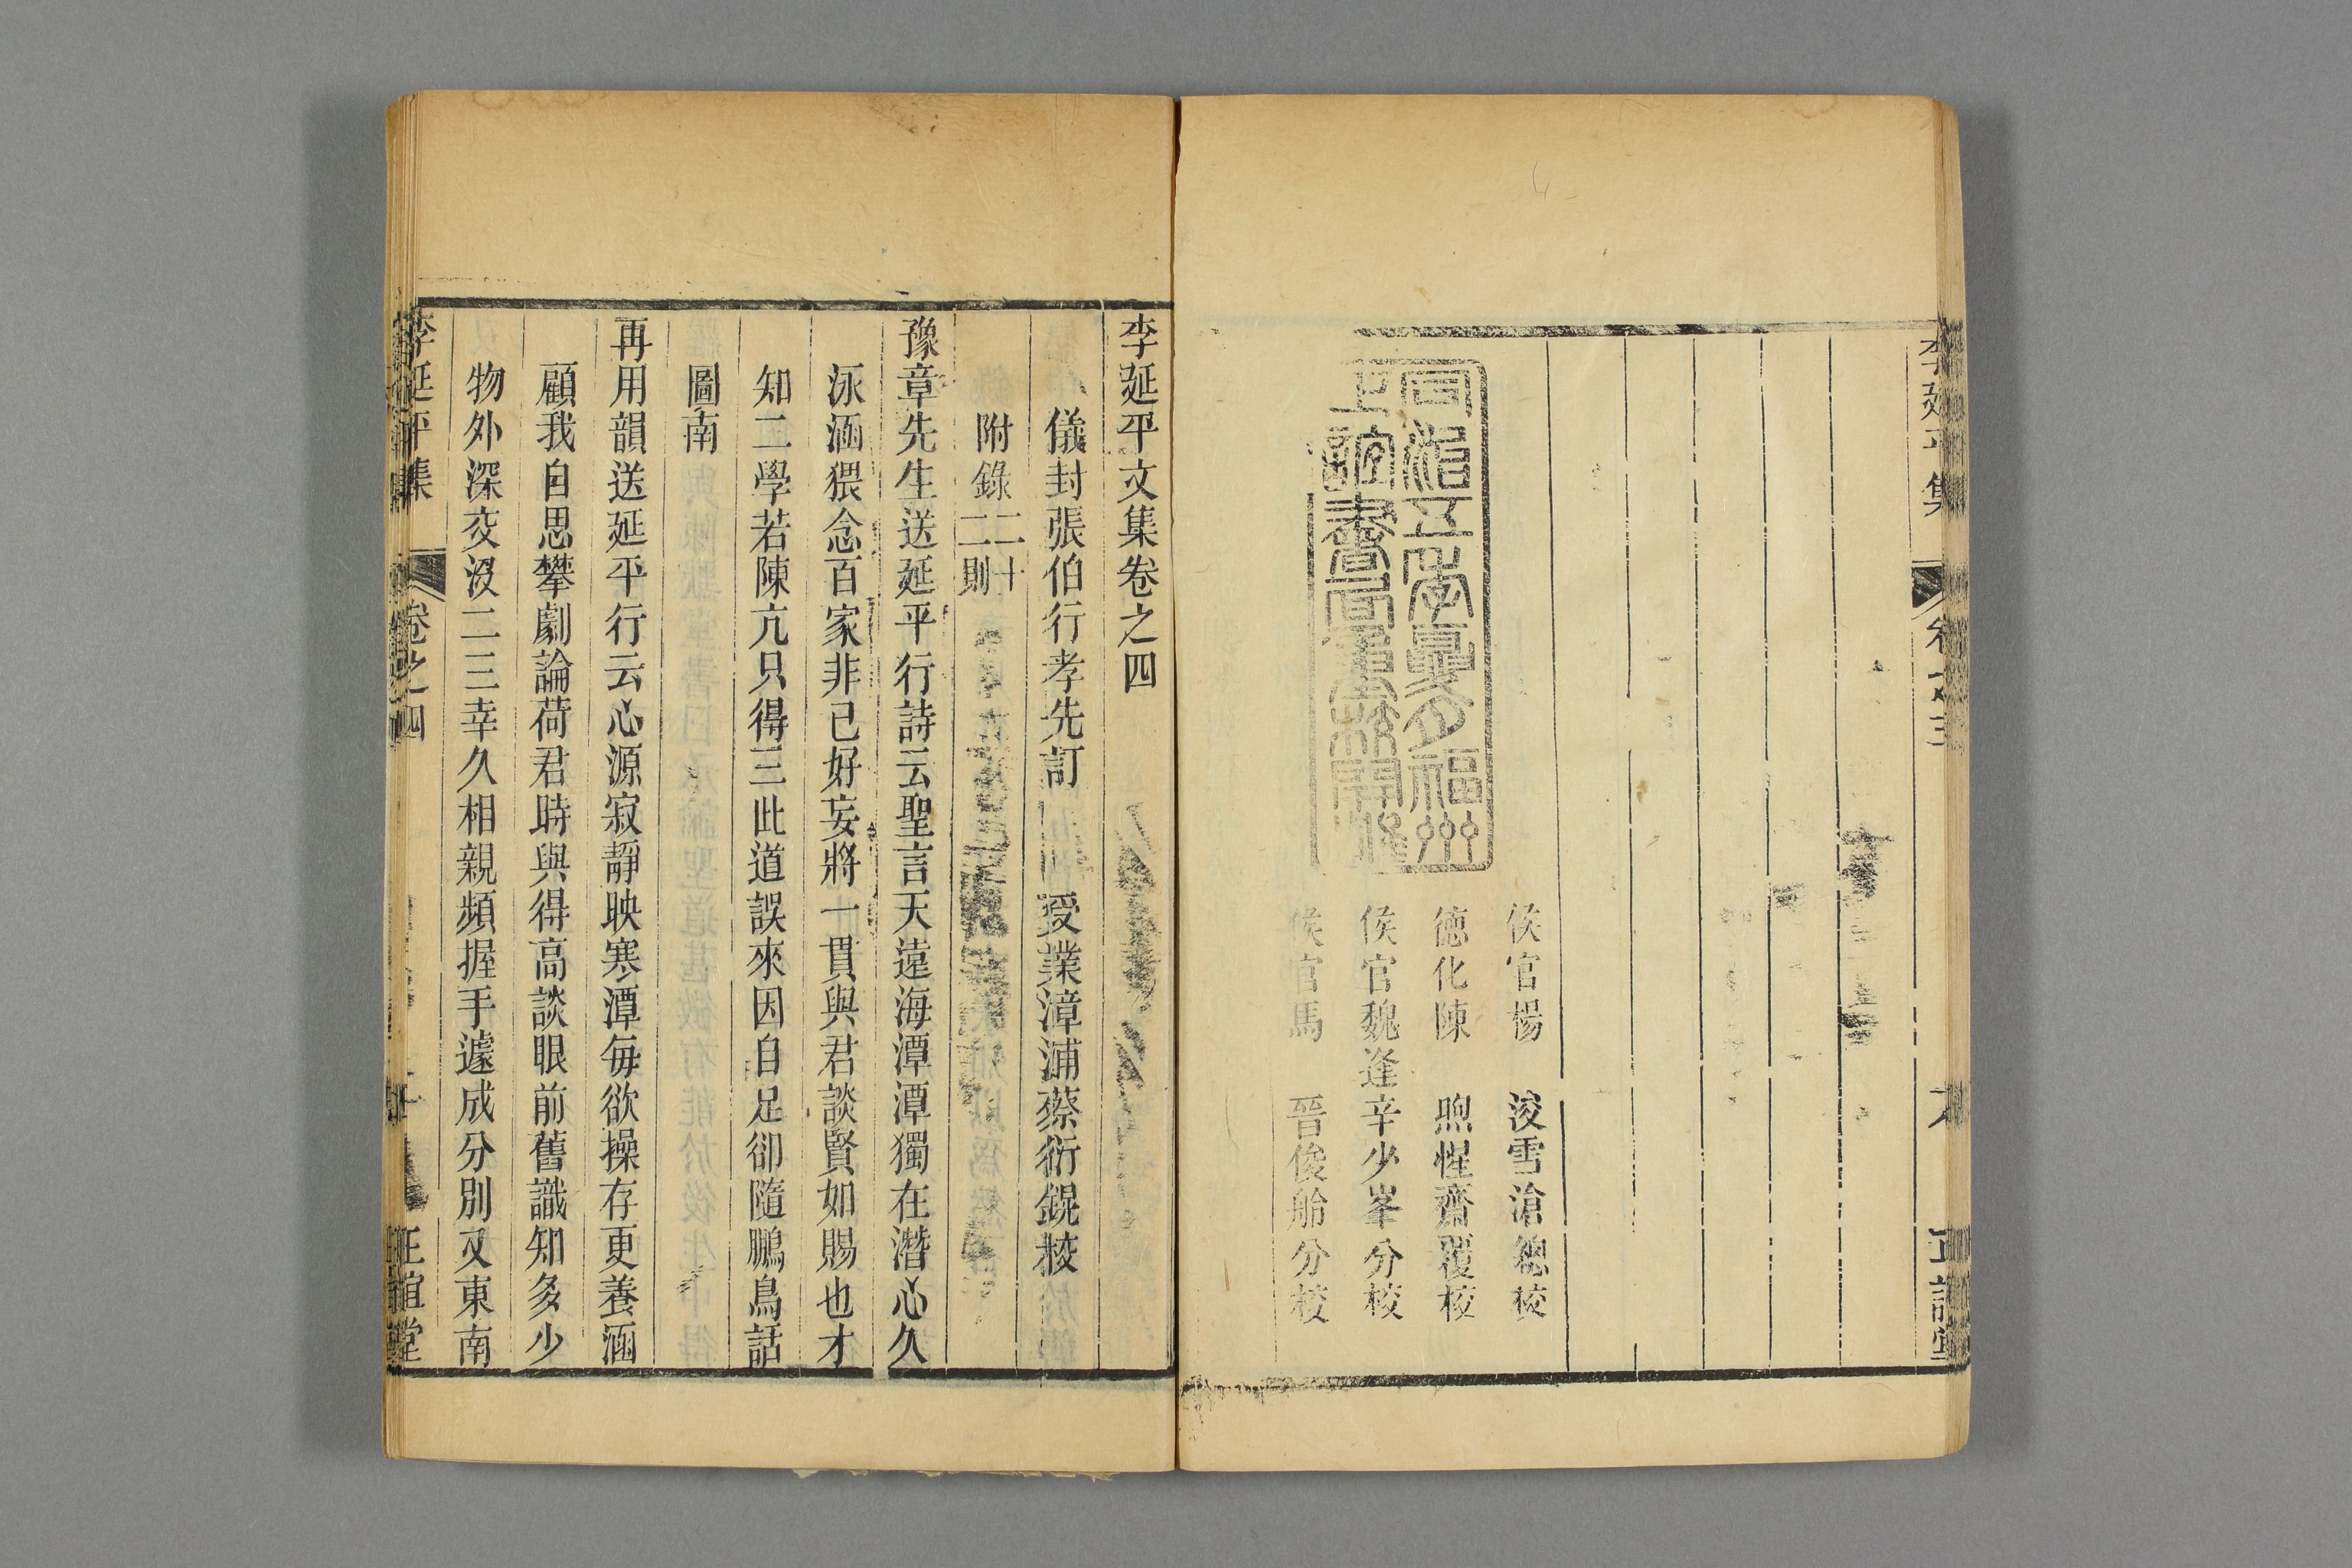 李延平集 卷之三 正誼堂
同治五年夏月福州
正誼書局重校開雕
侯官楊 浚雪滄總校
德化陳 煦惺齋覆校
侯官魏逢辛少峯分校
侯官馬 晉俊舲分校
李延平文集卷之四
儀封張伯行孝先訂 受業漳浦蔡衍鎤校
附錄二十二則
豫章先生送延平行詩云聖言天遠海潭潭獨在潛心久
泳涵猥念百家非已好妄將一貫與君談賢如賜也才
知二學若陳亢只得三此道誤來因自足卻隨鵬鳥話
圖南
再用韻送延平行云心源寂靜映寒潭每欲操存更養涵
顧我自思攀劇論荷君時與得高談眼前舊識知多少
物外深交沒二三幸久相親頻握手遽成分別又東南
李延平集 卷之四 正誼堂